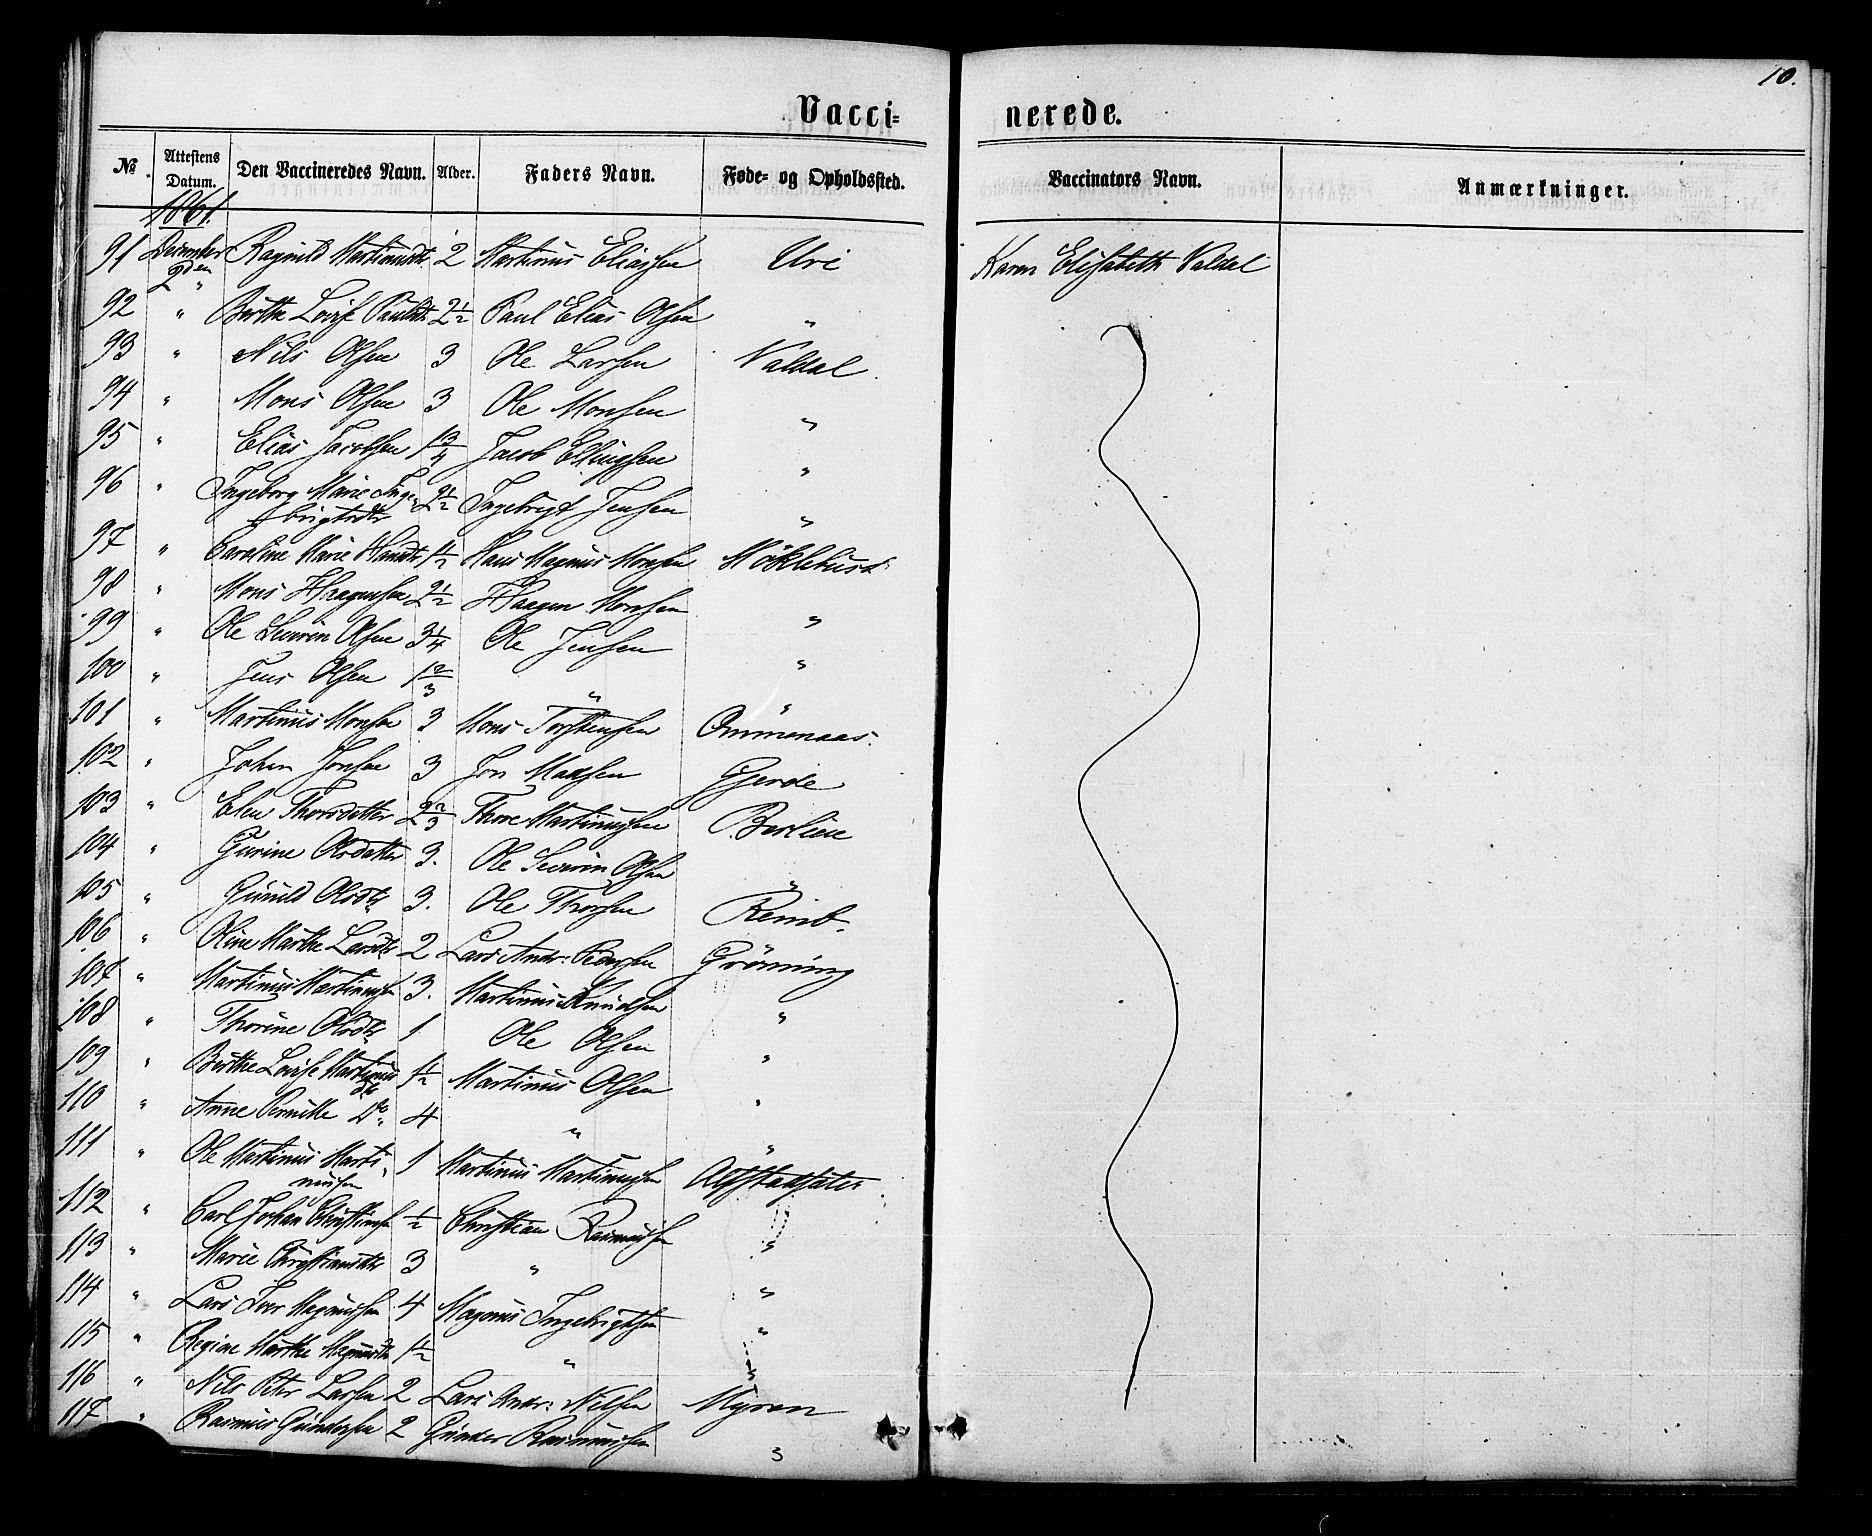 10.
Vacci-
nerede.
No.
Attestens Datum.
Den Vaccineredes Navn.
Alder.
Faders Navn.
Føde- og Opholdssted.
Vaccinators Navn.
Anmærkninger.
1861.
91 December 2den Ragnild Martinusdtr 2 Martinus Eliassen Uri Karen Elisabeth Valdal
" "
92 " Birthe Lovise Paulsdtr 2½ Paul Elias Olsen "
93 " Nils Olsen 3 Ole Larsen Valdal
94 " Mons Olsen 3 Ole Monsen "
95 " Elias Jacobsen 1¾ Jacob Ellingsen "
96 " Ingeborg Marie Inge- 2½ Ingebrigt Jensen "
brigtsdtr
97 " Caroline Marie Hansdtr 1½ Hans Magnus Monsen Møklebust
98 " Mons Haagensen 2½ Haagen Monsen "
99 " Ole Severin Olsen 3¼ Ole Jensen "
100 " Jens Olsen 1⅔ " "
101 " Martinus Monsen 3 Mons Torstensen Ommenaas.
102 " Johan Jonsen 3 Jon Madsen Gjerde
103 " Elen Thorsdatter 2⅔ Thore Martinussen Berlien
104 " Gurine Olsdatter 3. Ole Severin Olsen "
105 " Gunild Olsdtr 3. Ole Thorsen Remb.
106 " Oline Marthe Larsdtr 2 Lars Andr: Pedersen Grønning
107 " Martinus Martinussen 3. Martinus Knudsen "
108 " Thorine Olsdtr 1 Ole Olsen "
109 " Birthe Lovise Martinus 1½ Martinus Olsen "
dtr
110 " Anne Pernille Do 4 " "
111 " Ole Martinus Marti- 1 Martinus Martinussen Alstadsæter
nussen
112 " Carl Johan Christiansen ½ Christian Rasmussen "
113 " Marie Christiansdtr 3 " "
114 " Lars Iver Magnussen 4 Magnus Ingebrigtsen "
115 " Regine Marthe Magnusdtr 1½ " "
116 " Nils Peter Larsen 2 Lars Andr: Nilsen Myren
117 " Rasmus Gundersen 2 Gunder Rasmussen "